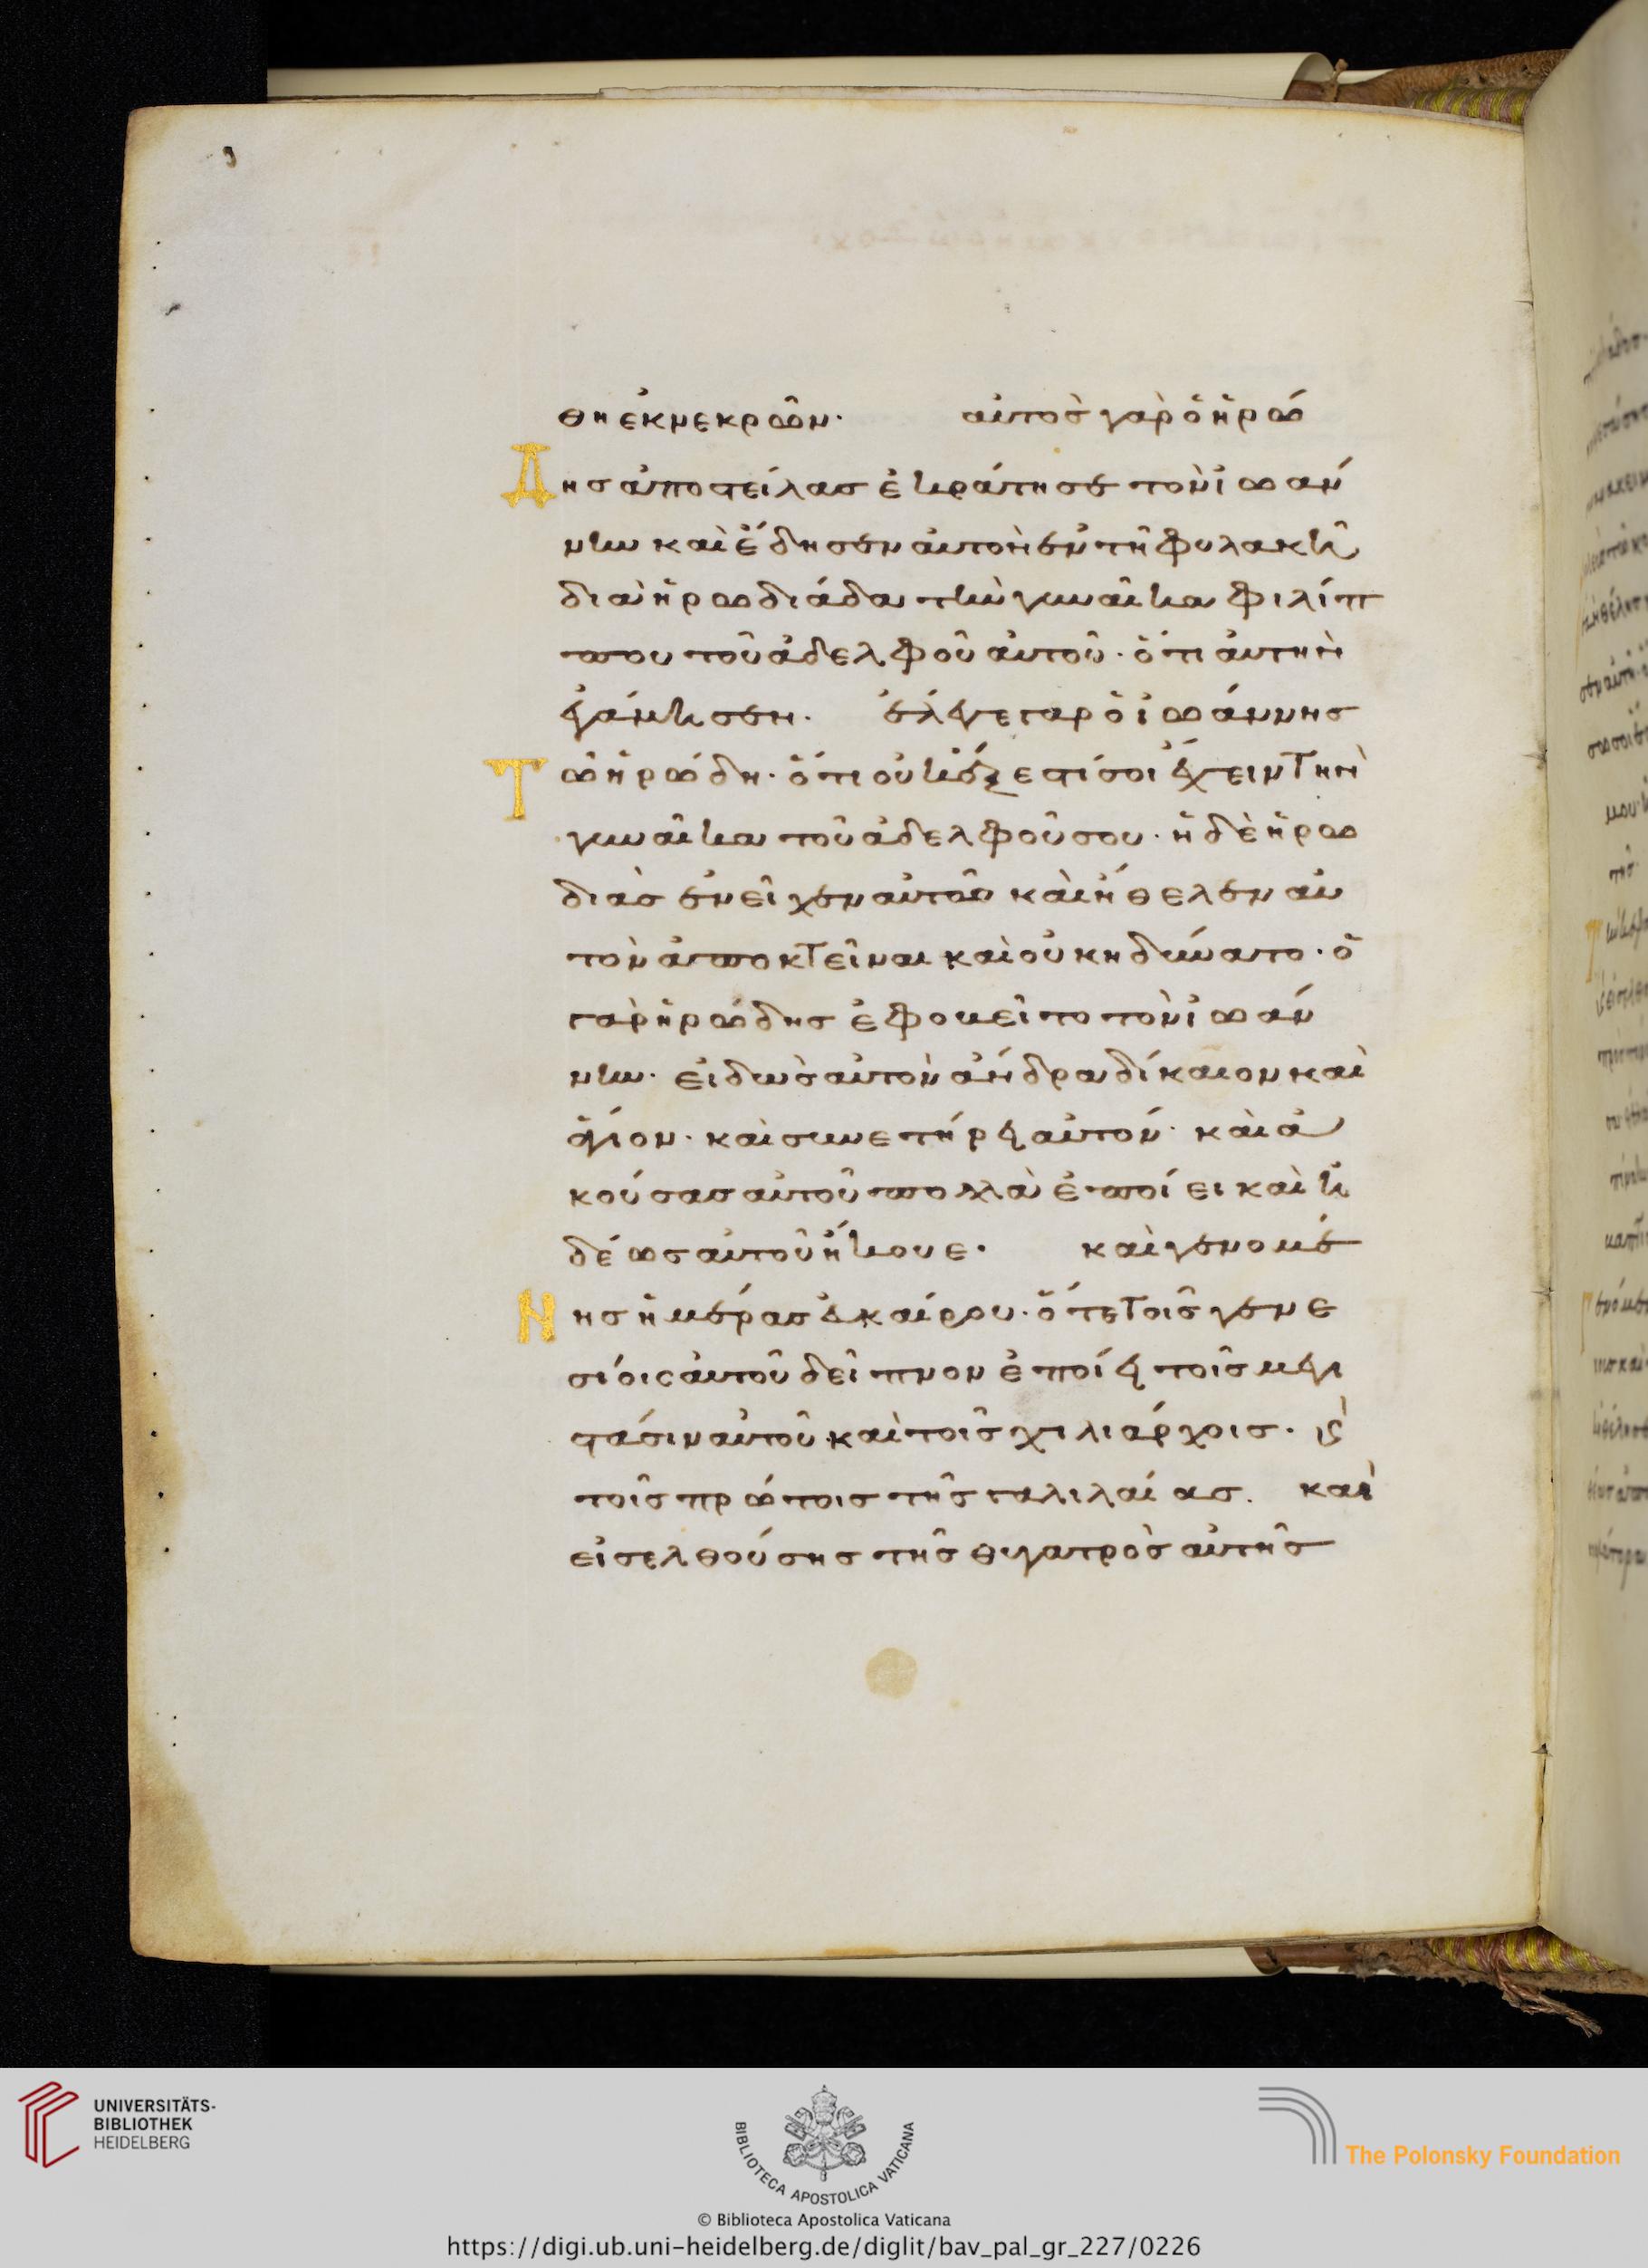 θη ἐκ νεκρῶν· αὐτὸς γὰρ ὁ ἡρώ
Δης ἀποστείλας ἐκράτησε τὸν ἰωάν
νην καὶ ἔδησεν αὐτὸν ἐν τῇ φυλακῇ
διὰ ἡρωδιάδα τὴν γυναῖκα φιλίπ
που τοῦ ἀδελφοῦ αὐτοῦ· ὅτι αὐτὴν
ἐγάμησεν. ἔλεγε γαρ ὁ ἰωάννης
Τῶ ἡρώδη· ὅτι οὐκ ἔξεστί σοι ἔχειν τὴν
γυναῖκα τοῦ ἀδελφοῦ σου· ἡ δὲ ἡρω
διὰς ἐνεῖχεν αὐτῶ καὶ ἤθελεν αὐ
τὸν ἀποκτεῖναι καὶ οὐκ ηδύνατο· ὁ
γὰρ ἡρώδης ἐφοβεῖτο τὸν ἰωάν
νην· εἰδὼς αὐτὸν ἄνδρα δίκαιον καὶ
ἅγιον· καὶ συνετήρει αὐτόν· καὶ ἀ
κούσας αὐτοῦ πολλὰ ἐποίει καὶ ἡ
δέως αὐτοῦ ἤκουε· καὶ γενομέ
Νης ἡμέρας εὐκαίρου· ὅτε τοῖς γενε
σίοις αὐτοῦ δεῖπνον ἐποίει τοῖς μεγι
στάσιν αὐτοῦ καὶ τοῖς χιλιάρχοις. κ(αὶ)
τοῖς πρώτοις τῆς γαλιλαίας. καὶ
εἰσελθούσης τῆς θυγατρὸς αὐτῆς
UNIVERSITÄTS-
BIBLIOTHEK
HEIDELBERG
BIBLIOTECA APOSTOLICA VATICANA
The Polonsky Foundation
© Biblioteca Apostolica Vaticana
https://digi.ub.uni-heidelberg.de/diglit/bav_pal_gr_227/0226